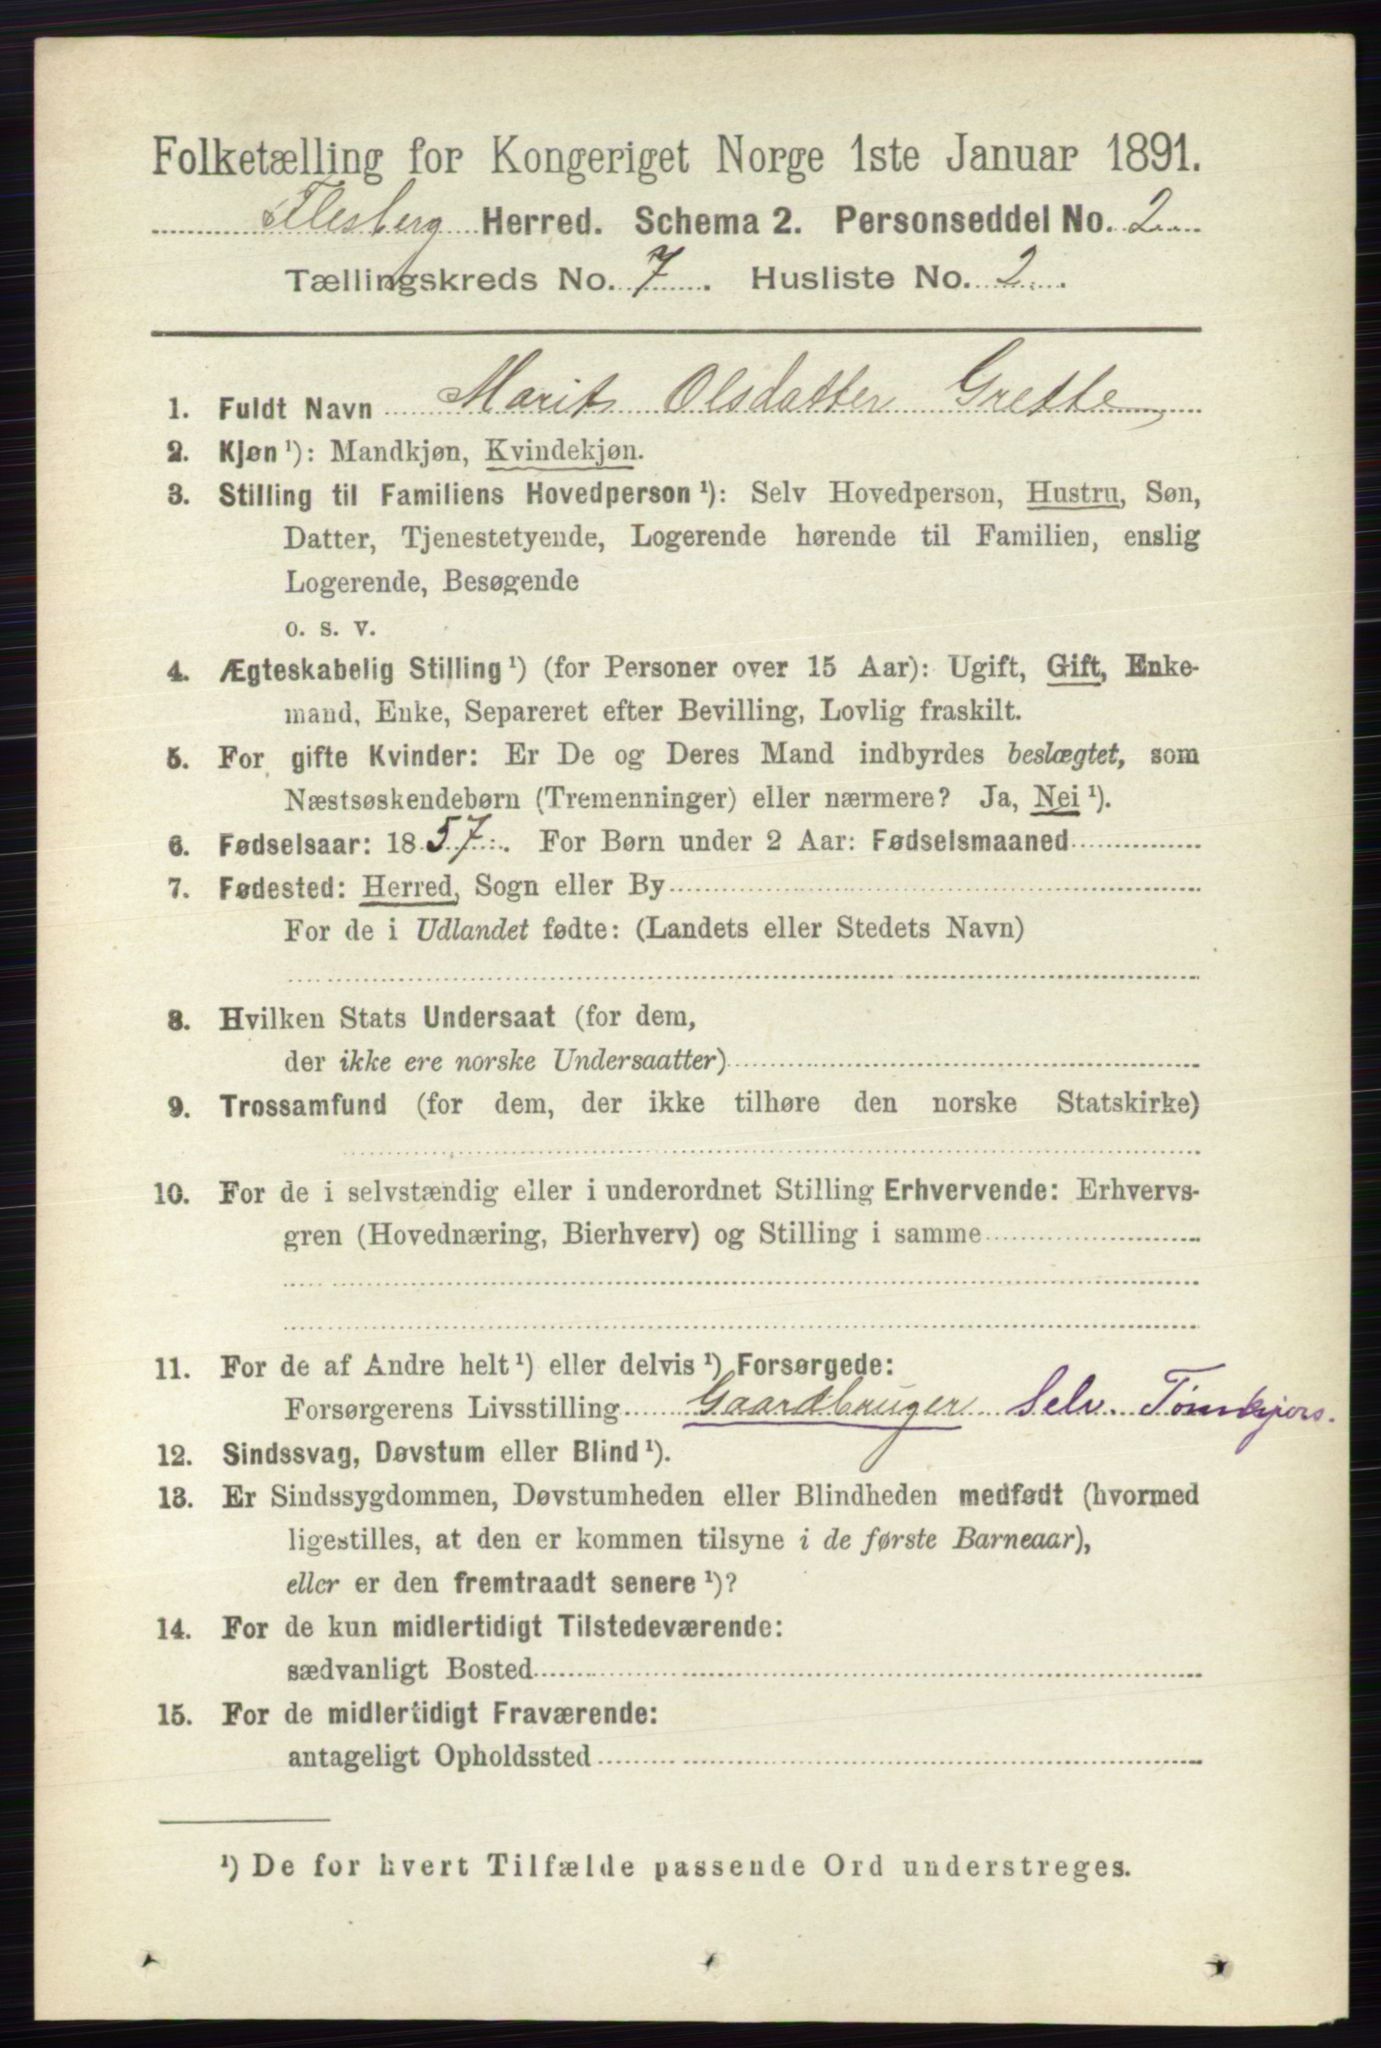 Folketælling for Kongeriget Norge 1ste Januar 1891.
Flesberg Herred. Schema 2. Personseddel No. 2
Tællingskreds No. 7. Husliste No. 2.
1. Fuldt Navn Marit Olsdatter Grette
2. Kjøn ¹): Mandkjøn, Kvindekjøn.
3. Stilling til Familiens Hovedperson ¹): Selv Hovedperson, Hustru, Søn,
Datter, Tjenestetyende, Logerende hørende til Familien, enslig
Logerende, Besøgende
o. s. v.
4. Ægteskabelig Stilling ¹) (for Personer over 15 Aar): Ugift, Gift, Enke-
mand, Enke, Separeret efter Bevilling, Lovlig fraskilt.
5. For gifte Kvinder: Er De og Deres Mand indbyrdes beslægtet, som
Næstsøskendebørn (Tremenninger) eller nærmere? Ja, Nei ¹).
6. Fødselsaar: 1857. For Børn under 2 Aar: Fødselsmaaned
7. Fødested: Herred, Sogn eller By
For de i Udlandet fødte: (Landets eller Stedets Navn)
8. Hvilken Stats Undersaat (for dem,
der ikke ere norske Undersaatter)
9. Trossamfund (for dem, der ikke tilhøre den norske Statskirke)
10. For de i selvstændig eller i underordnet Stilling Erhvervende: Erhvervs-
gren (Hovednæring, Bierhverv) og Stilling i samme
11. For de af Andre helt ¹) eller delvis ¹) Forsørgede:
Forsørgerens Livsstilling Gaardbruger Selv.
12. Sindssvag, Døvstum eller Blind ¹).
13. Er Sindssygdommen, Døvstumheden eller Blindheden medfødt (hvormed
ligestilles, at den er kommen tilsyne i de første Barneaar),
eller er den fremtraadt senere ¹)?
14. For de kun midlertidigt Tilstedeværende:
sædvanligt Bosted
15. For de midlertidigt Fraværende:
antageligt Opholdssted
¹) De for hvert Tilfælde passende Ord understreges.